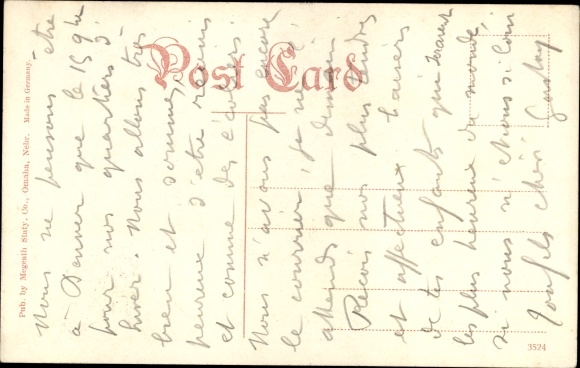 Post Card
Pub. by Megeath Staty. Co., Omaha, Nebr. Made in Germany.
Nous ne pensons être
à Denver que le 15 9bre
pour nos quartiers d'
hiver. Nous allons très
bien et sommes
heureux d'être réunis
et comme des écoliers
Nous n'avons pas encore
le courrier, je ne l'
attends que demain
Reçois nos plus tendres
et affectueux baisers
de tes enfants qui seraient
les plus heureux du monde,
si nous n'étions si loin
Ton fils chéri Gustav
3524